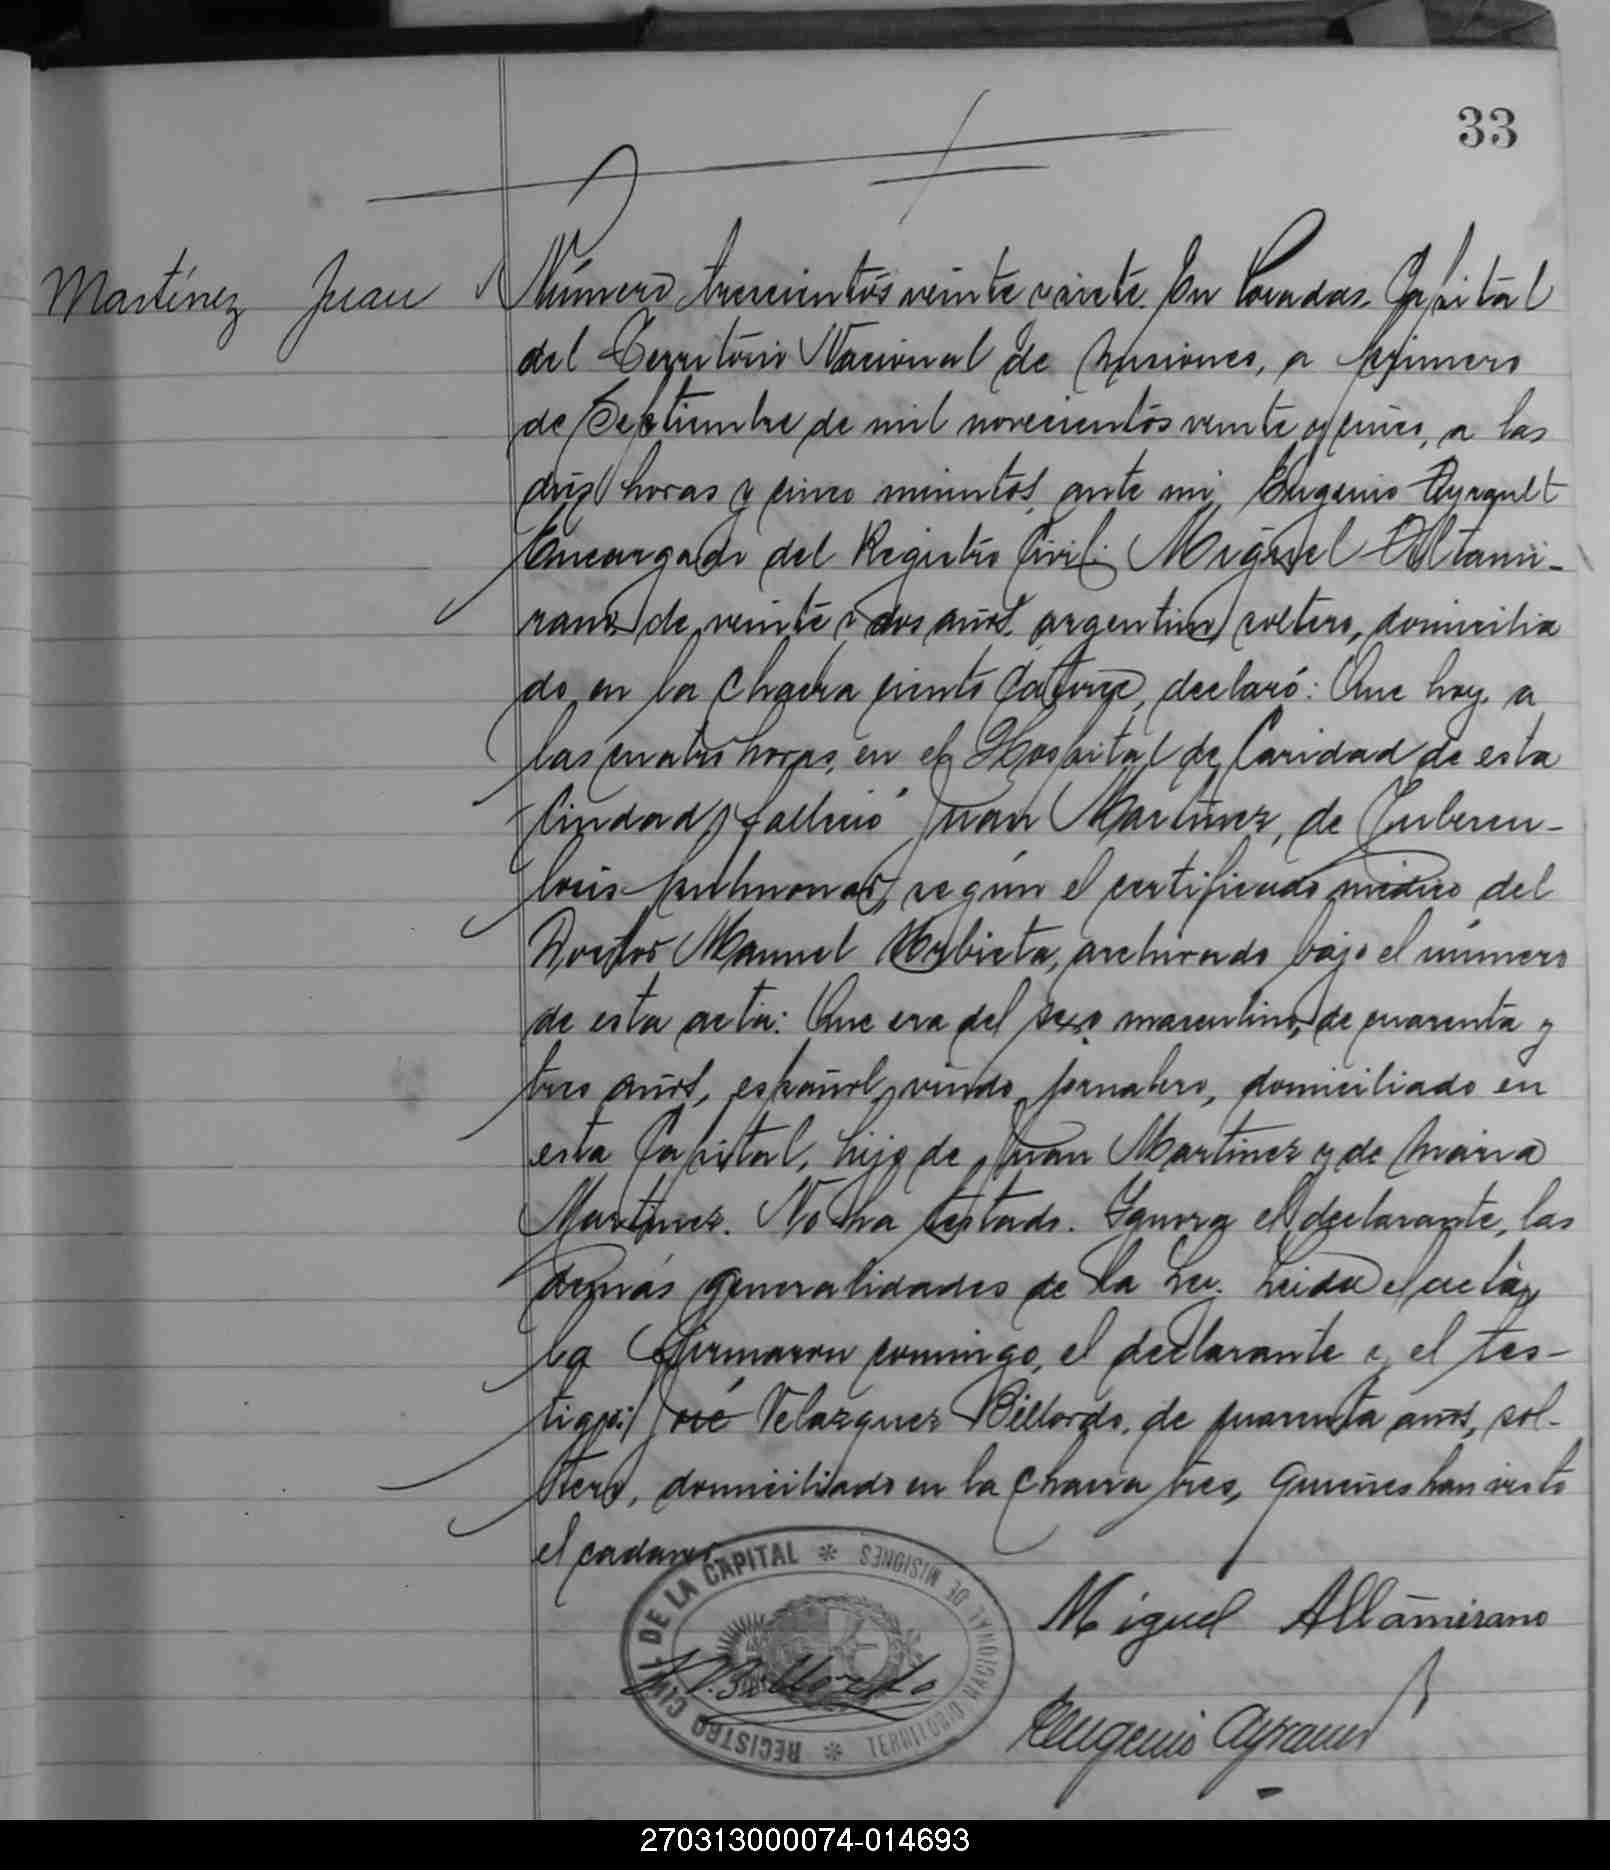 33
Martínez Juan
Número trescientos veinte y siete. En Posadas, Capital
del Territorio Nacional de Misiones, a primero
de Septiembre de mil novecientos veinte y cinco, a las
diez horas y cinco minutos, ante mi, Eugenio Ayrault
Encargado del Registro Civil: Miguel Altami-
rano, de veinte y dos años, argentino, soltero, domicilia
do en la chacra ciento catorce, declaró: Que hoy, a
las cuatro horas, en el Hospital de Caridad de esta
Ciudad, falleció Juan Martínez, de Tubercu-
losis pulmonar, según el certificado médico del
Doctor Manuel Urbieta, archivado bajo el número
de esta acta: Que era del sexo masculino, de cuarenta y
tres años, español, viudo, jornalero, domiciliado en
esta Capital, hijo de Juan Martinez y de Maria
Martinez. No ha testado. Ignora el declarante, las
demás generalidades de la Ley. Leida el acta,
la firmaron conmigo, el declarante y el tes-
tigo: José Velazquez Billordo, de cuarenta años, sol-
tero, domiciliado en la chacra tres, quienes han visto
el cadaver.
REGISTRO CIVIL DE LA CAPITAL * TERRITORIO NACIONAL DE MISIONES *
J. V. Billordo
Miguel Altamirano
Eugenio Ayrault
270313000074-014693